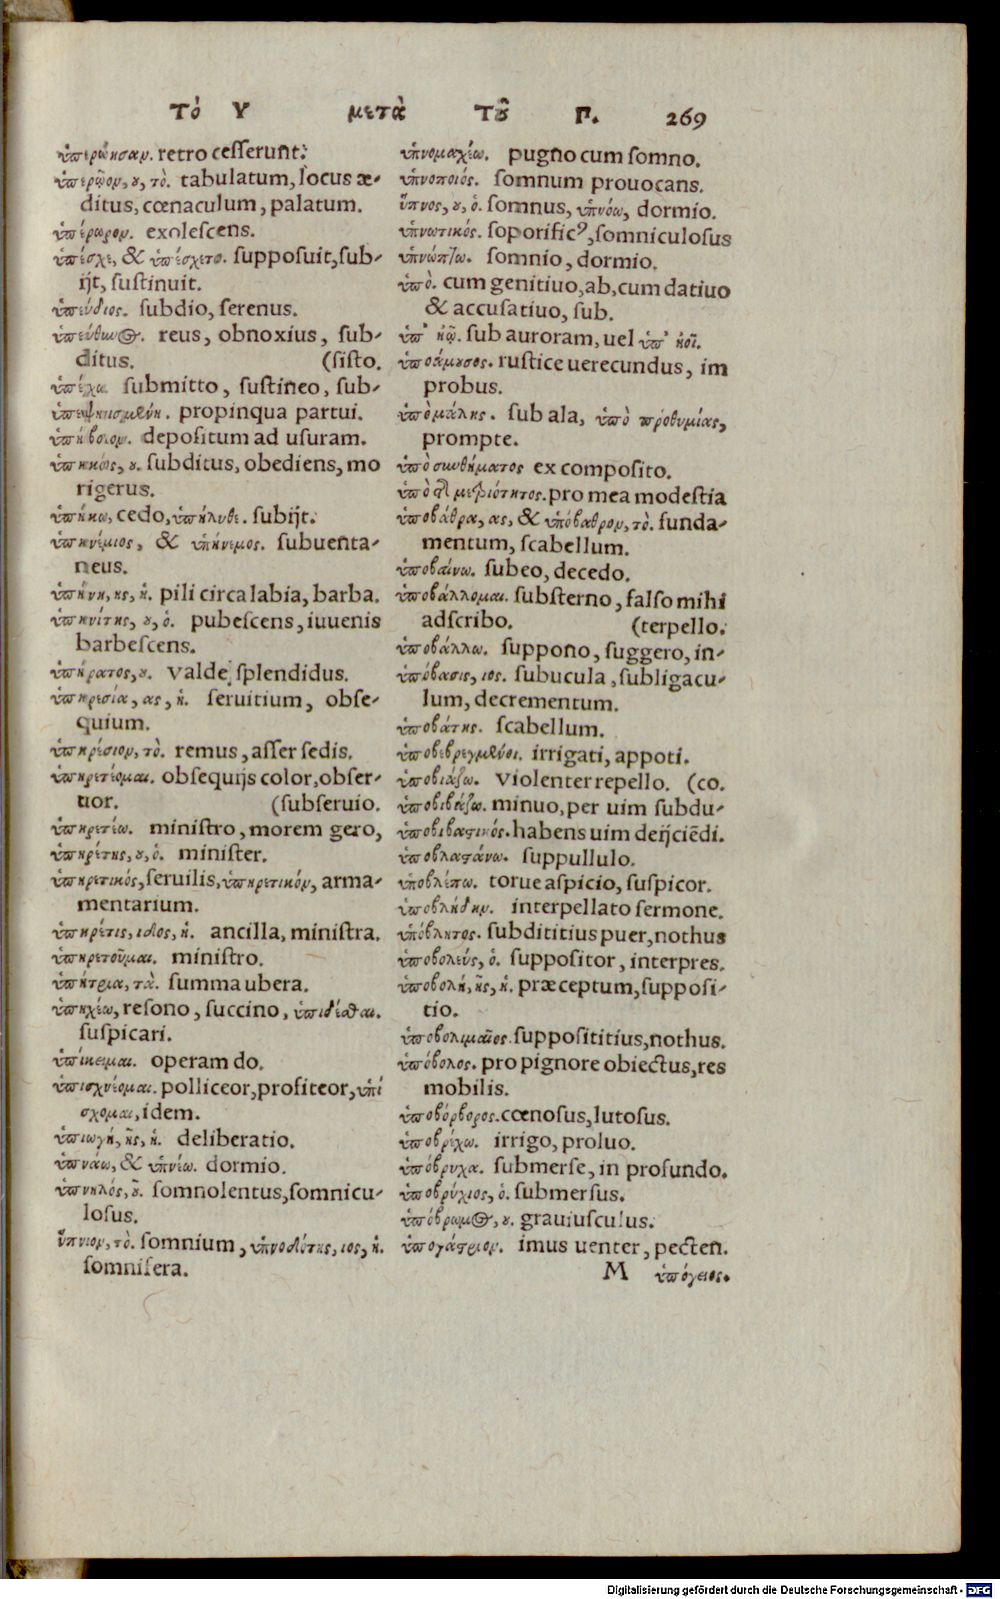 Τὸ Υ μετὰ Τοῦ Π. 269
ὑπερώησαν. retro cesserunt.
ὑπερῶον, ου, τὸ. tabulatum, locus æ-
ditus, cœnaculum, palatum.
ὑπέρωρον. exolescens.
ὑπέσχε, & ὑπέσχετο. supposuit, sub-
ijt, sustinuit.
ὑπεύδιος. subdio, serenus.
ὑπεύθυνος. reus, obnoxius, sub-
ditus. (sisto.
ὑπέχω submitto, sustineo, sub-
propinqua partui.
ὑπηβοιον. depositum ad usuram.
ὑπηκοος, ου. subditus, obediens, mo
rigerus.
ὑπήκω, cedo, ὑπήλυθε. subijt.
ὑπηνέμιος, & ὑπήνεμος. subuenta-
neus.
ὑπήνη, ης, ἡ. pili circa labia, barba.
ὑπηνίτης, ου, ὁ. pubescens, iuuenis
barbescens.
ὑπήρατος, ου. valde splendidus.
ὑπηρεσία, ας, ἡ. seruitium, obse-
quium.
ὑπηρέσιον, τὸ. remus, asser sedis.
ὑπηρετέομαι. obsequijs color, obser-
uor. (subseruio.
ὑπηρετέω. ministro, morem gero,
ὑπηρέτης, ου, ὁ. minister.
ὑπηρετικός, seruilis, ὑπηρετικόν, arma-
mentarium.
ὑπηρέτις, ιδος, ἡ. ancilla, ministra.
ὑπηρετοῦμαι. ministro.
ὑπήτρια, τὰ. summa ubera.
ὑπηχέω, resono, succino, ὑπιδέσθαι.
suspicari.
ὑπίκειμαι. operam do.
ὑπισχνέομαι. polliceor, profiteor, ὑπί
σχομαι, idem.
ὑπιωγή, ῆς, ἡ. deliberatio.
ὑπνάω, & ὑπνέω. dormio.
ὑπνηλός, οῦ. somnolentus, somnicu-
losus.
ὕπνιον, τὸ. somnium, ὑπνοδότης, ιος, ἡ.
somnifera.
ὑπνομαχέω. pugno cum somno.
ὑπνοποιός. somnum prouocans.
ὕπνος, ου, ὁ. somnus, ὑπνόω, dormio.
ὑπνωτικός. soporificꝰ, somniculosus
ὑπνώττω. somnio, dormio.
ὑπὸ. cum genitiuo, ab, cum datiuo
& accusatiuo, sub.
ὑπ' ἠῶ. sub auroram, uel ὑπ' ἠοῖ.
ὑποάμουσος. rustice uerecundus, im
probus.
ὑπὸ μάλης. sub ala, ὑπὸ προθυμίας,
prompte.
ὑπὸ συνθήματος ex composito.
ὑπὸ τῆς μετριότητος. pro mea modestia
ὑποβάθρα, ας, & ὑπόβαθρον, τὸ. funda-
mentum, scabellum.
ὑποβαίνω. subeo, decedo.
ὑποβάλλομαι. substerno, falso mihi
adscribo. (terpello.
ὑποβάλλω. suppono, suggero, in-
ὑπόβασις, ιος. subucula, subligacu-
lum, decrementum.
ὑποβάτης. scabellum.
ὑποβεβρεγμένοι. irrigati, appoti.
ὑποβιάζω. violenter repello. (co.
ὑποβιβάζω. minuo, per uim subdu-
ὑποβιβαστικός. habens uim deijciēdi.
ὑποβλαστάνω. suppullulo.
ὑποβλέπω. torue aspicio, suspicor.
ὑποβλήδην. interpellato sermone.
ὑπόβλητος. subdititius puer, nothus
ὑποβολεύς, ὁ. suppositor, interpres.
ὑποβολή, ῆς, ἡ. præceptum, supposi-
tio.
ὑποβολιμαῖος. supposititius, nothus.
ὑπόβολος. pro pignore obiectus, res
mobilis.
ὑποβόρβορος. cœnosus, lutosus.
ὑποβρέχω. irrigo, proluo.
ὑπόβρυχα. submerse, in profundo.
ὑποβρύχιος, ὁ. submersus.
ὑπόβρωμος, ου. grauiusculus.
ὑπογάστριον. imus uenter, pecten.
M ὑπόγειος.
Digitalisierung gefördert durch die Deutsche Forschungsgemeinschaft - DFG